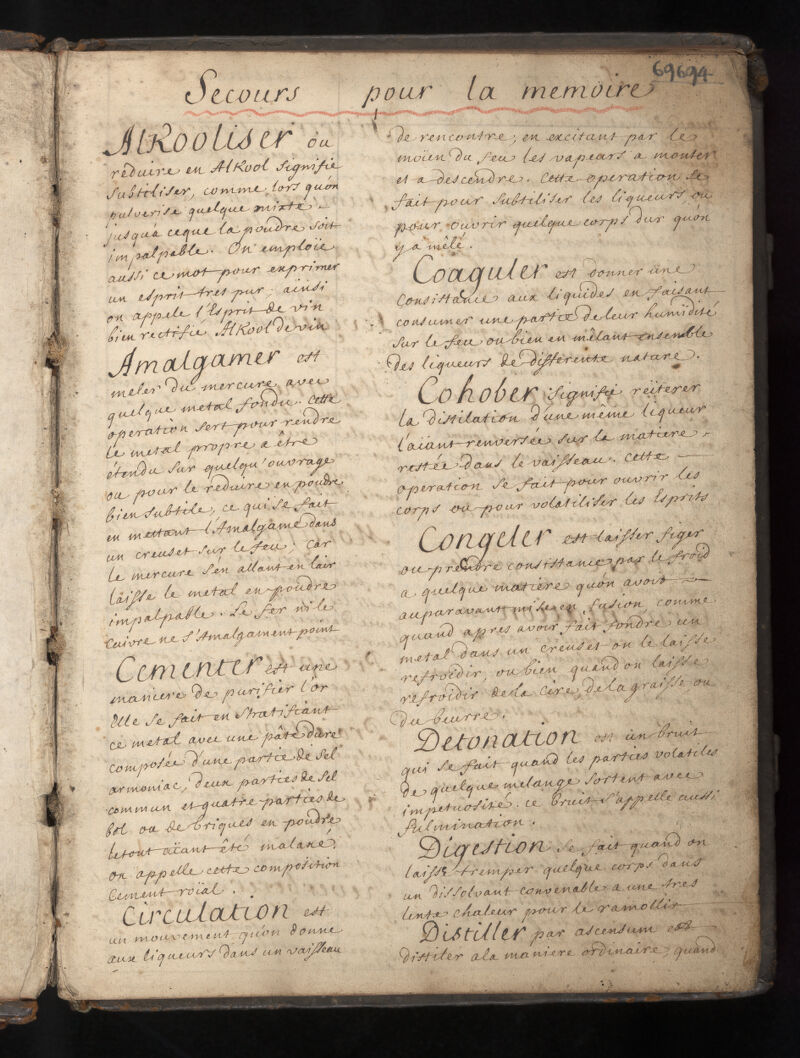 69694
Secours pour la memoire
Alkooliser ou
réduire en Alkool signifie
subtiliser, comme lors quón
pulverise quelque mixte
jusquà ceque la poudre soit
impalpable. On emploïe
aussi ce mot pour exprimer
un esprit tres pur; ainsi
on appele l'Esprit de vin
bien rectifié Alkool de vin
Amalgamer est
meler du mercure avec
quelque metal fondu. Cette
operation sert pour rendre
le metal propre a être
étendu sur quelqu'ouvrage
ou pour le reduire en poudre
bien subtile, ce qui se fait
en mettant l'Amalgame dans
un creuset sur le feu; car
le mercure s'en allant en lair
laisse le metal en poudre
impalpable. Le fer ni le
Cuivre ne s'Amalgament point
Cementer est une
maniere de purifier l'or
Elle se fait en stratifiant
ce metal avec une pâte dure
composée d'une partie de sel
armoniac, deux parties de sel
commun et quatre parties de
bol ou de briques en poudre
le tout aïant été malaxé;
on appelle cette composition
Cement roïal.
Circulation est
un mouvement qu'on donne
aux liqueurs dans un vaisseau
de rencontre; en excitant par le
moïen du feu les vapeurs a monter
et a descendre. Cette operation se
fait pour subtiliser les liqueurs ou
pour ouvrir quelque corps dur quón
y a mêlé.
Coaguler est donner une
Consistance aux liquides en faisant
consumer une partie de leur humidité
sur le feu ou bien en mêlant ensemble
des liqueurs de differente nature.
Cohober signifie reïterer
la distilation d'une même liqueur
l'aïant renversée sur la matiere
restée dans le vaisseau. Cette
operation se fait pour ouvrir les
corps ou pour volatiliser les Esprits
Congeler est laisser figer
ou prendre consistance par le froid
a quelque matiere quón avoit
auparavant mise en fusion, comme
quand apres avoir fait fondre un
metal dans un creuset on le laisse
refroidir, ou bien quand on laisse
refroidir de la Cire, de la graisse ou
du beurre.
Detonation est un bruit
qui se fait quand les parties volatiles
de quelque melange sortent avec
impetuosité. ce bruit s'appelle aussi
fulmination.
Digestion se fait quand on
laisse tremper quelque corps dans
un dissolvant convenable a une tres
lente chaleur pour le ramollir
Distiller par ascensum est
distiler a la maniere ordinaire, quand